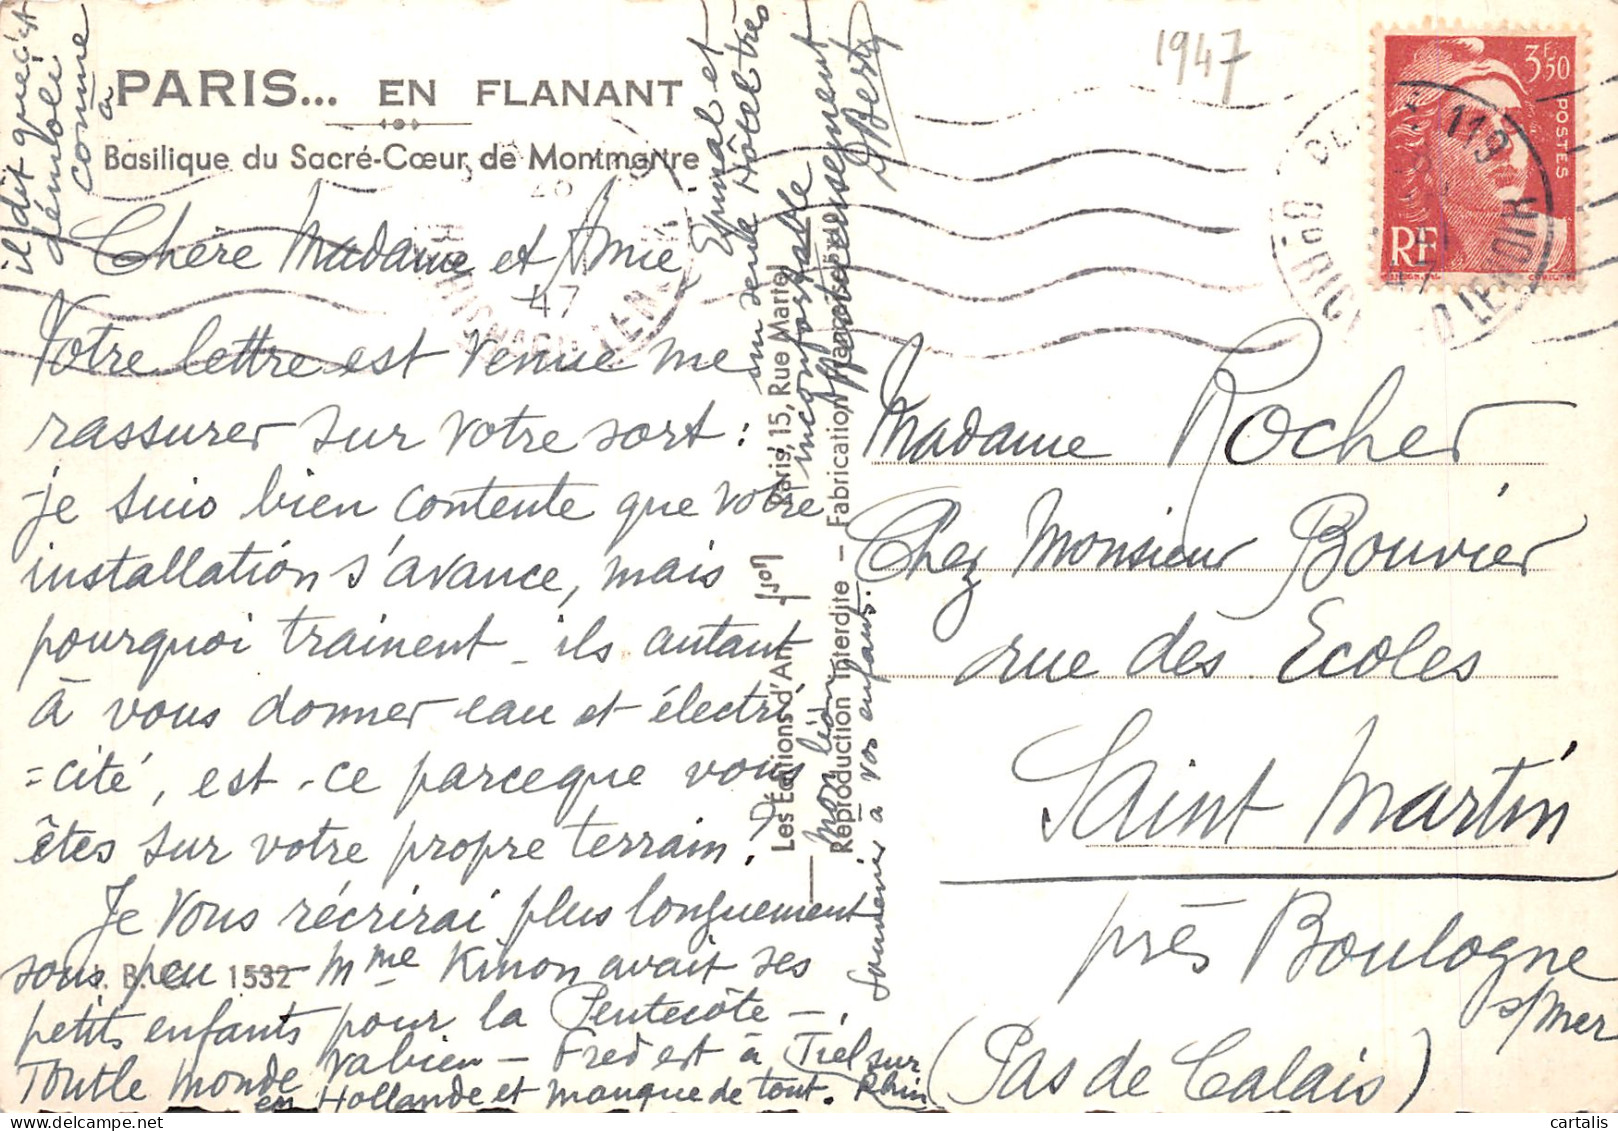 PARIS... EN FLANANT
Basilique du Sacré-Cœur de Montmartre
1947
3F,50
POSTES
RF
119
47
Chère Madame et Amie
Votre lettre est venue me
rassurer sur votre sort :
je suis bien contente que votre
installation s'avance, mais
pourquoi trainent-ils autant
à vous donner eau et électri
=cité, est-ce parceque vous
êtes sur votre propre terrain ?
Je vous récrirai plus longuement
sous peu — Mme Kinon avait ses
petits enfants pour la Pentecôte —
Toutle monde va bien — Fred est à Tiel sur Rhin
en Hollande et manque de tout.
il dit que c'est
démoli
comme
à
Epinal et
un seule Hôtel très
inconfortable
Affectueusement
D Berty
mon lion
Souvenir à vos enfants.
Les Éditions d'Art Yvon
Paris, 15, Rue Martel
Reproduction Interdite — Fabrication Française
1532
Madame Rocher
Chez Monsieur Bouvier
rue des Ecoles
Saint Martin
près Boulogne
s/Mer
(Pas de Calais)
cartalis